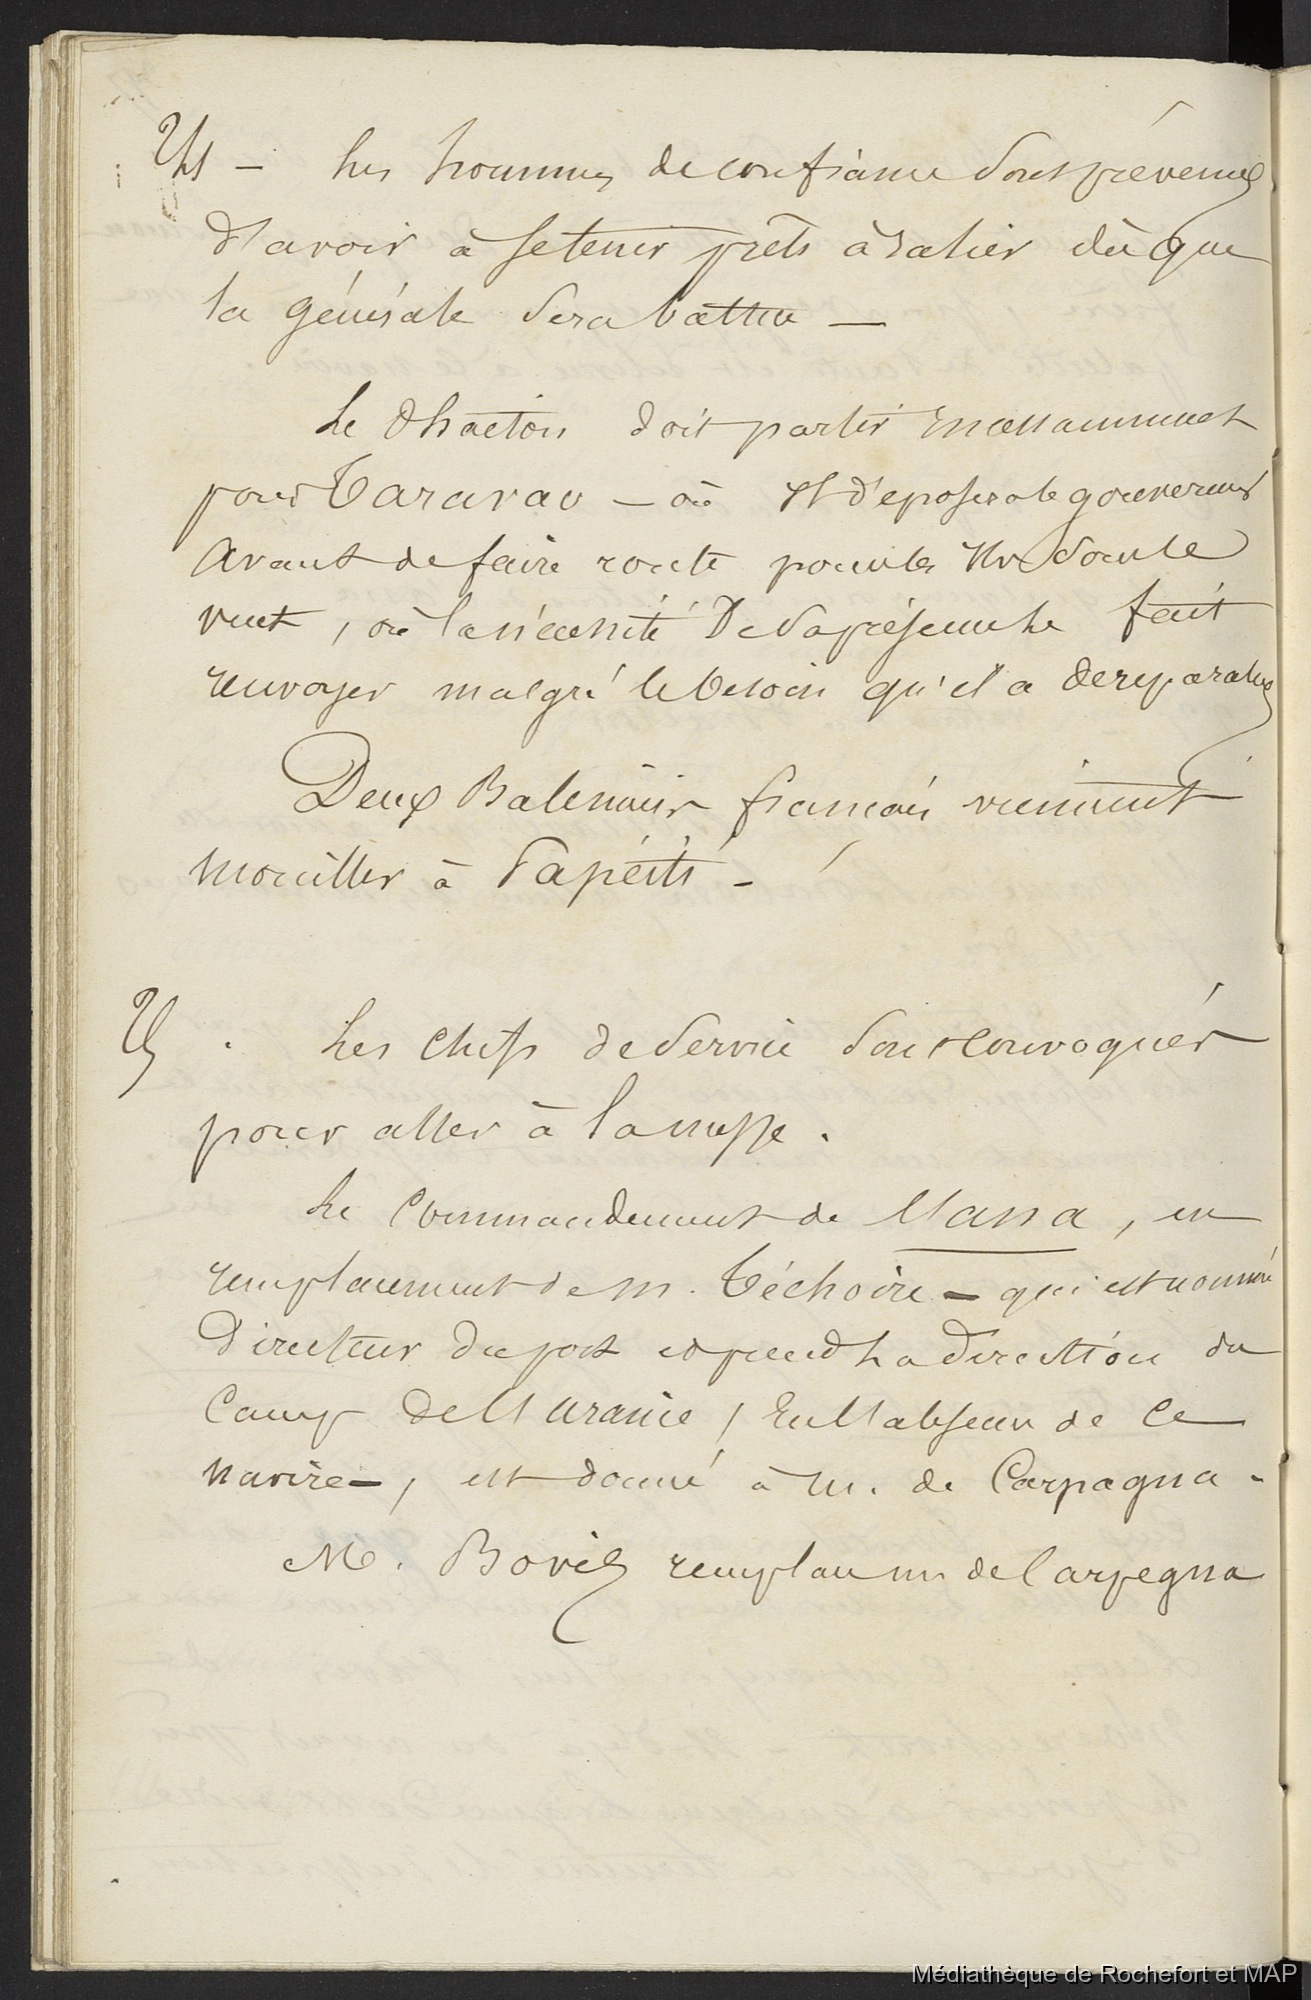 24 - Les hommes de confiance sont prévenus
d'avoir à se tenir prêts à ralier dès que
la générale sera battue —
Le Phaéton doit partir incessamment
pour Taravao — où il déposera le gouverneur
avant de faire route pour les Iles sous le
vent, où la nécessité de sa présence le fait
renvoyer malgré le besoin qu'il a de réparations
Deux Baleiniers français viennent
mouiller à Papéété -
25. Les chefs de service sont convoqués
pour aller à la messe.
Le Commandement de l'Anna, en
remplacement de m. Téchoire — qui est nommé
Directeur du port et prend la direction du
Camp de l'Uranie, en l'absence de ce
navire —, est donné à m. de Carpegna -
M. Boris remplace m. de Carpegna
Médiathèque de Rochefort et MAP